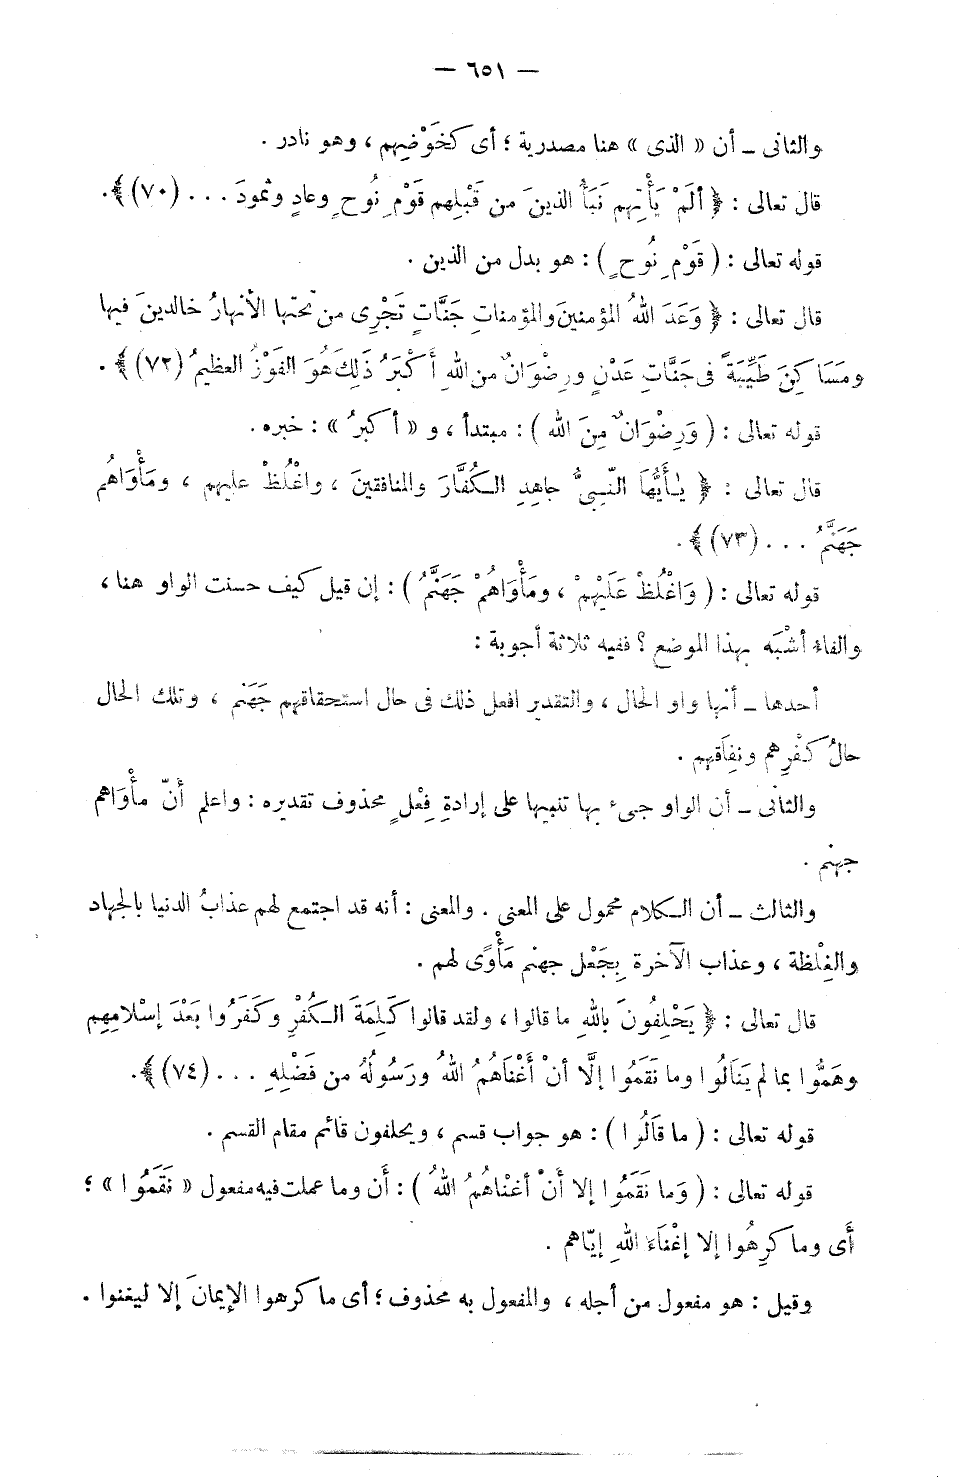 — ٦٥١ —
والثانى – أن « الذى » هنا مصدرية ؛ أى كخَوْضِهم ، وهو نادر .
قال تعالى : ﴿ ألَمْ يَأْتِهم نَبَأُ الذينَ من قَبْلِهم قَوْمِ نُوحٍ وعادٍ وثمودَ . . . (٧٠) ﴾ .
قوله تعالى : ( قَوْمِ نُوحٍ ) : هو بدل من الذين .
قال تعالى : ﴿ وَعَدَ اللهُ المؤمنينَ والمؤمناتِ جَنَّاتٍ تَجْرِى من تحتها الأنهارُ خالدينَ فيها
ومَسَاكِنَ طَيِّبَةً فى جَنَّاتِ عَدْنٍ ورِضْوَانٌ من اللهِ أَكْبَرُ ذَلِكَ هُوَ الفَوْزُ العظيمُ (٧٢) ﴾ .
قوله تعالى : ( وَرِضْوَانٌ مِنَ الله ) : مبتدأ ، و « أكبرُ » : خبره .
قال تعالى : ﴿ يٰأَيُّهَا النَّبِىُّ جاهِدِ الكُفَّارَ والمنافقينَ ، واغْلُظْ عليهم ، ومَأْوَاهُم
جَهَنَّمُ . . . (٧٣) ﴾ .
قوله تعالى : ( وَاغْلُظْ عَلَيْهِمْ ، ومَأْوَاهُمْ جَهَنَّمُ ) : إن قيل كيف حسنت الواو هنا ،
والفاء أشْبَه بهذا الموضع ؟ ففيه ثلاثة أجوبة :
أحدها – أنها واو الحال ، والتقدير افعل ذلك فى حال استحقاقهم جَهَنم ، وتلك الحال
حالُ كُفْرِهم ونِفَاقهم .
والثانى – أن الواو جىء بها تنبيها على إرادةِ فِعْلٍ محذوف تقديره : واعلم أنّ مأْوَاهم
جهنم .
والثالث – أن الكلام محمول على المعنى . والمعنى : أنه قد اجتمع لهم عذابُ الدنيا بالجهاد
والغِلْظة ، وعذاب الآخرة بِجَعْل جهنم مَأْوًى لهم .
قال تعالى : ﴿ يَحْلِفُونَ باللهِ ما قالوا ، ولقد قالوا كَلِمَةَ الكُفْرِ وكَفَرُوا بَعْدَ إسْلامِهِم
وهَمُّوا بما لم يَنَالُوا وما نَقَمُوا إلَّا أنْ أَغْنَاهُمُ اللهُ ورَسُولُهُ من فَضْلِهِ . . . (٧٤) ﴾ .
قوله تعالى : ( ما قَالُوا ) : هو جواب قسم ، ويحلفون قائم مقام القسم .
قوله تعالى : ( وَما نَقَمُوا إلا أَنْ أغْنَاهُمُ اللهُ ) : أَن وما عملت فيه مفعول « نَقَمُوا » ؛
أَى وما كرِهُوا إلا إغْنَاءَ اللهِ إيّاهم .
وقيل : هو مفعول من أجله ، والمفعول به محذوف ؛ أى ما كرهوا الإيمانَ إلا ليغنوا .